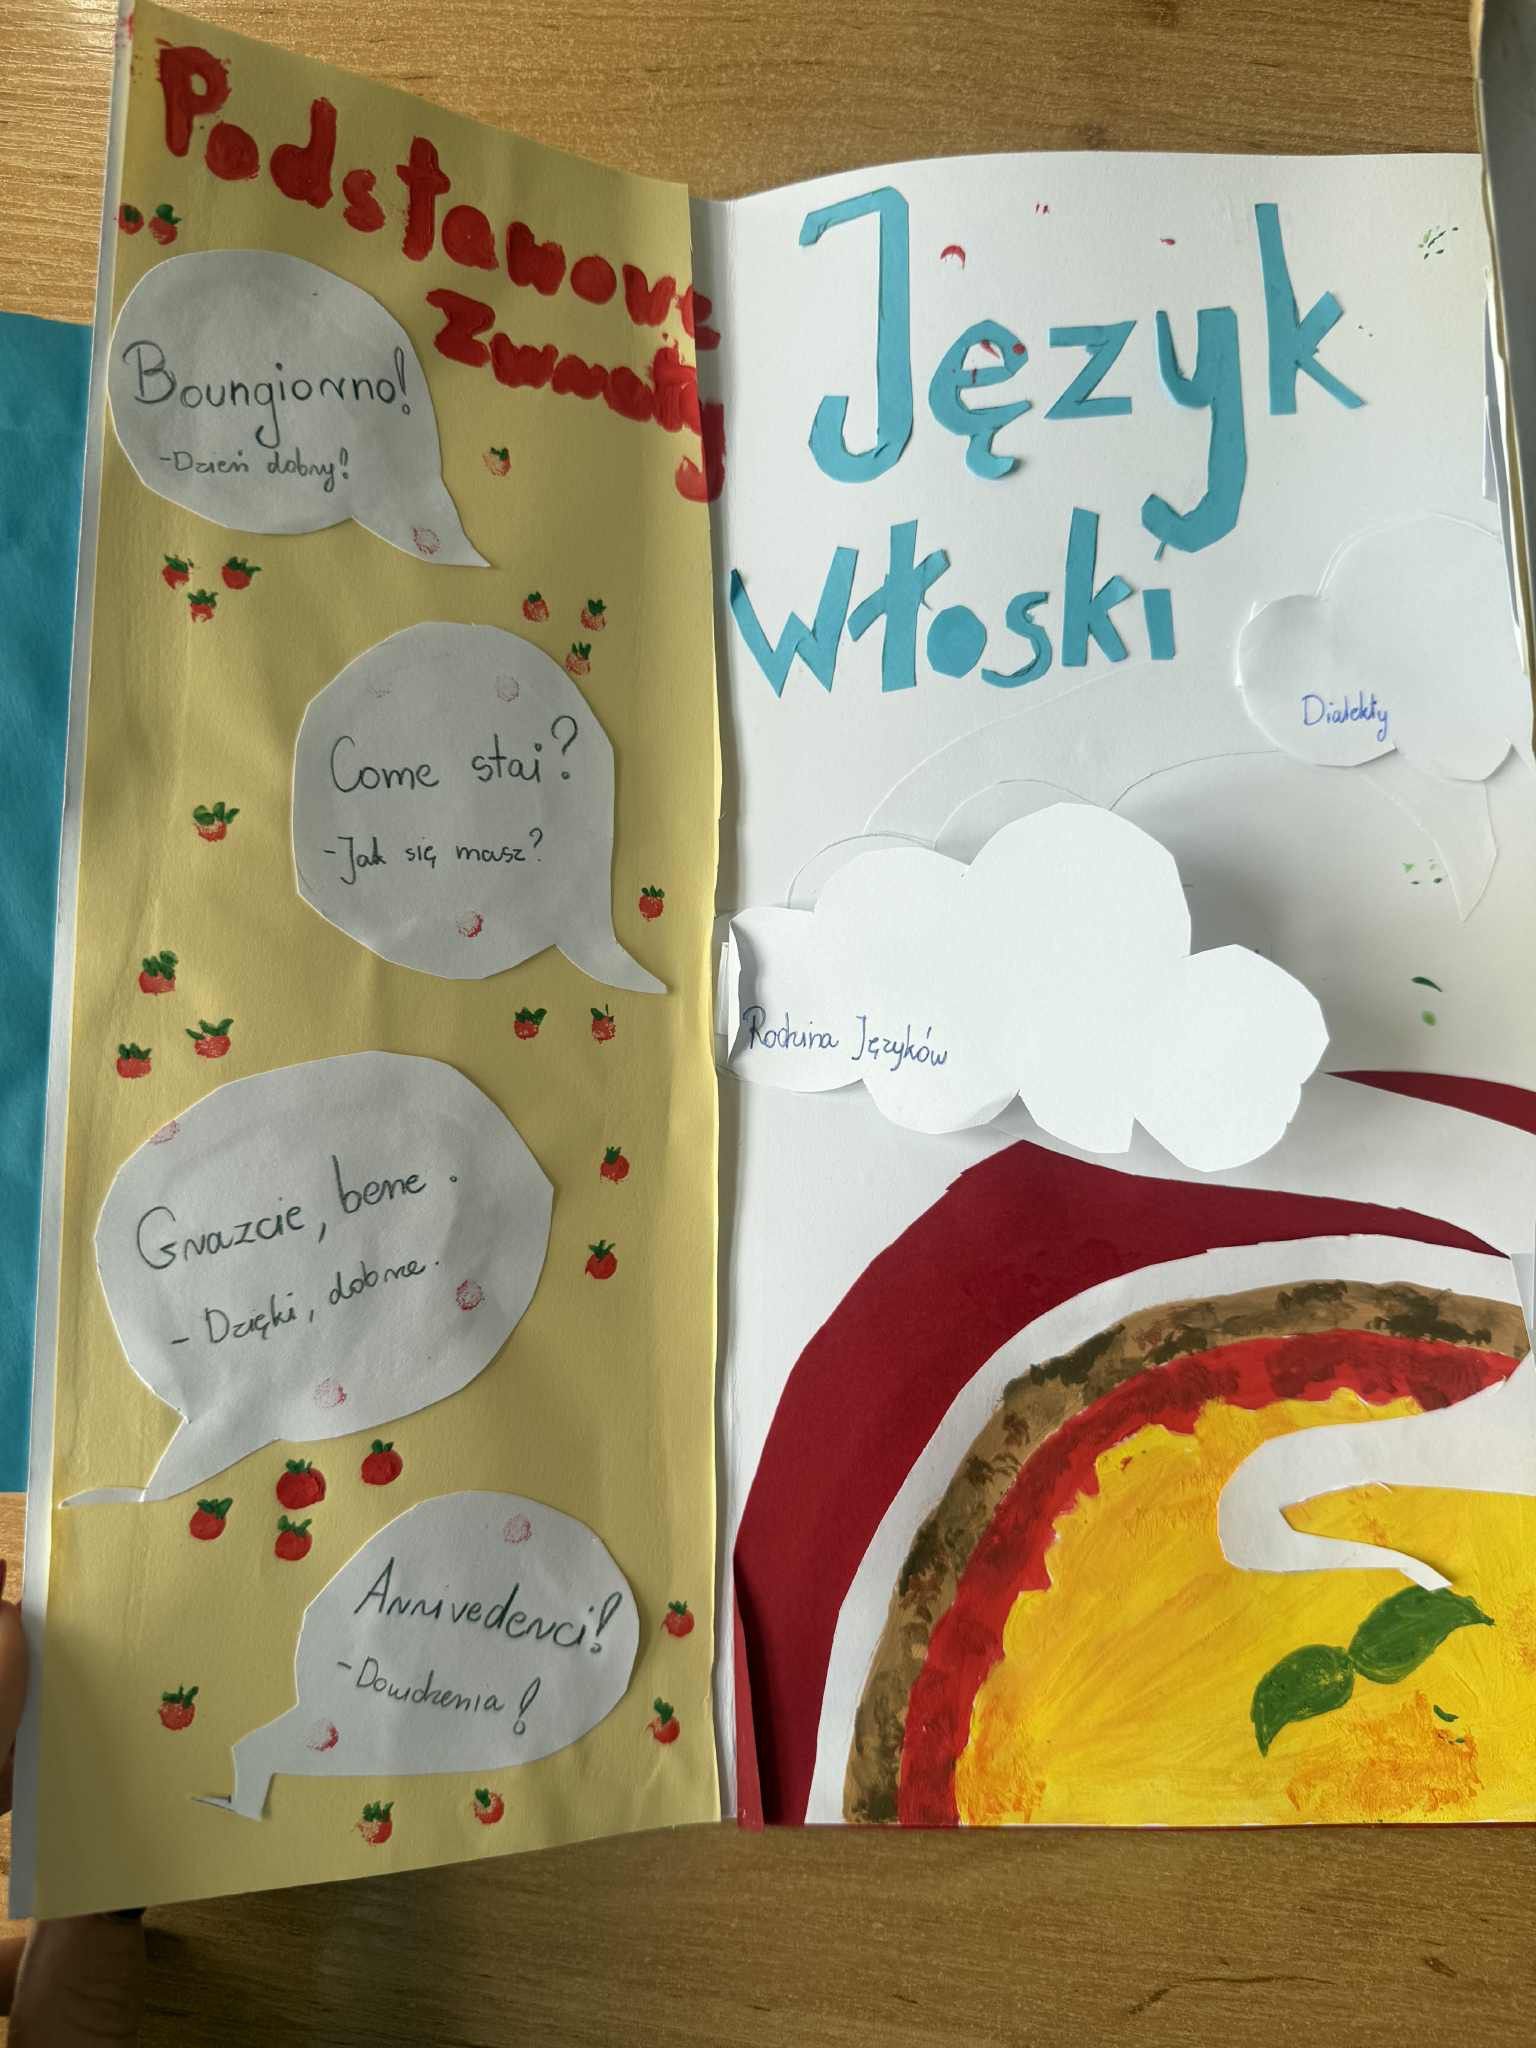 Podstawowe
Zwroty
Boungiorno!
-Dzień dobry!
Come stai?
-Jak się masz?
Grazcie, bene.
- Dzięki, dobrze.
Arrivederci!
-Dowidzenia!
Język
Włoski
Dialekty
Rodzina Języków